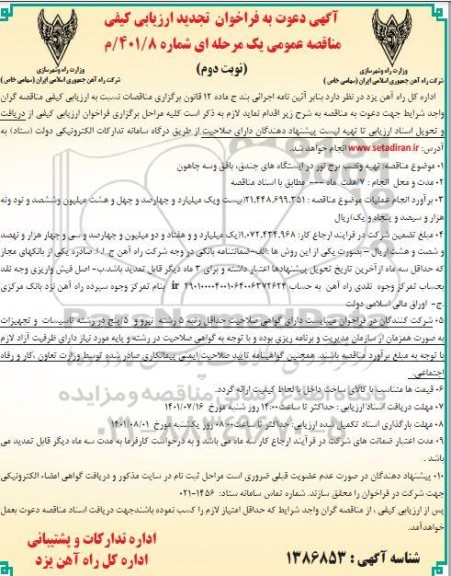 آگهی دعوت به فراخوان تجدید ارزیابی کیفی
مناقصه عمومی یک مرحله ای شماره ۴۰۱/۸/م
(نوبت دوم)
وزارت راه وشهرسازی
شرکت راه آهن جمهوری اسلامی ایران (سهامی خاص)
وزارت راه وشهرسازی
شرکت راه آهن جمهوری اسلامی ایران (سهامی خاص)
اداره کل راه آهن یزد در نظر دارد بنابر آئین نامه اجرائی بند ج ماده ۱۲ قانون برگزاری مناقصات نسبت به ارزیابی کیفی مناقصه گران
واجد شرایط جهت دعوت به مناقصه به شرح زیر اقدام نماید لازم به ذکر است کلیه مراحل برگزاری فراخوان ارزیابی کیفی از دریافت
و تحویل اسناد ارزیابی تا تهیه لیست پیشنهاد دهندگان دارای صلاحیت از طریق درگاه سامانه تدارکات الکترونیکی دولت (ستاد) به
آدرس: www.setadiran.ir انجام خواهد شد.
۰۱ موضوع مناقصه: تهیه ونصب برج نور در ایستگاه های جندق، بافق وسه چاهون
۰۲ مدت و محل انجام : ۷/هفت ماه --- مطابق با اسناد مناقصه
۰۳ برآورد انجام عملیات موضوع مناقصه : ۲۱.۴۴۸.۶۹۹.۳۵۱/بیست ویک میلیارد و چهارصد و چهل و هشت میلیون وششصد و نود ونه
هزار و سیصد و پنجاه و یک/ریال
۰۴ مبلغ تضمین شرکت در فرایند ارجاع کار: ۱.۰۷۲.۴۳۴.۹۶۸/یک میلیارد و هفتاد و دو میلیون و چهارصد و سی و چهار هزار و نهصد
و شصت و هشت/ریال –بصورت یکی از این روش ها :الف-ضمانتنامه بانکی در وجه شرکت راه آهن ج.ا.ا صادره یکی از بانکهای مجاز
که حداقل سه ماه از آخرین تاریخ تحویل پیشنهادها اعتبار داشته و برای ۳ ماه دیگر قابل تمدید باشد.ب- اصل فیش واریزی وجه نقد
بحساب تمرکز وجوه نقدی راه آهن به حساب ir بنام تمرکز وجوه سپرده راه آهن نزد بانک مرکزی
ج- اوراق مالی اسلامی دولت
۰۵ شرکت کنندگان در فراخوان میبایست دارای گواهی صلاحیت حداقل رتبه ۵ رشته نیرو و ۵/پنج در رشته تاسیسات و تجهیزات
به صورت همزمان از سازمان مدیریت و برنامه ریزی بوده و با توجه به گواهی صلاحیت در رشته و پایه مورد نیاز دارای ظرفیت آزاد لازم
با توجه به مبلغ برآورد مناقصه باشند. همچنین گواهینامه تایید صلاحیت ایمنی پیمانکاری صادر شده توسط وزارت تعاون ،کار و رفاه
اجتماعی
۰۶ قیمت ها متناسب با کالای ساخت داخل با لحاظ کیفیت ارائه گردد.
۰۷ مهلت دریافت اسناد ارزیابی : حداکثر تا ساعت ۱۴:۰۰ روز شنبه مورخ ۱۴۰۱/۰۷/۱۶
۰۸ مهلت بارگذاری اسناد تکمیل شده ارزیابی: حداکثر تا ساعت ۰۸:۰۰ روز یکشنبه مورخ ۱۴۰۱/۰۸/۰۱
۰۹ مدت اعتبار ضمانت های شرکت در فرآیند ارجاع کار سه ماه می باشد و به درخواست کارفرما به مدت سه ماه دیگر قابل تمدید می
باشد .
۰۱۰ پیشنهاد دهندگان در صورت عدم عضویت قبلی ضروری است مراحل ثبت نام در سایت مذکور و دریافت گواهی امضاء الکترونیکی
جهت شرکت در فراخوان را محقق سازند. شماره تماس سامانه ستاد: ۱۴۵۶-۰۲۱
پس از ارزیابی کیفی ، از مناقصه گران واجد شرایط که حداقل امتیاز لازم را کسب نموده باشندجهت دریافت اسناد مناقصه دعوت بعمل
خواهدآمد.
اداره تدارکات و پشتیبانی
اداره کل راه آهن یزد
شناسه آگهی : ۱۳۸۶۸۵۳